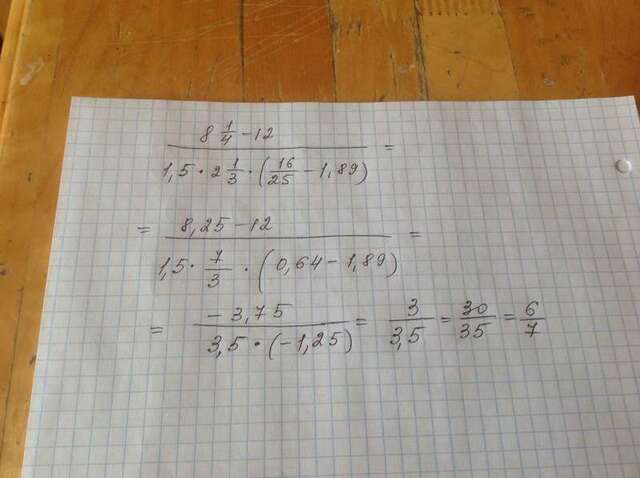 8 1/4 - 12 / 1,5 · 2 1/3 · (16/25 - 1,89) =
= 8,25 - 12 / 1,5 · 7/3 · (0,64 - 1,89) =
= - 3,75 / 3,5 · (-1,25) = 3/3,5 = 30/35 = 6/7